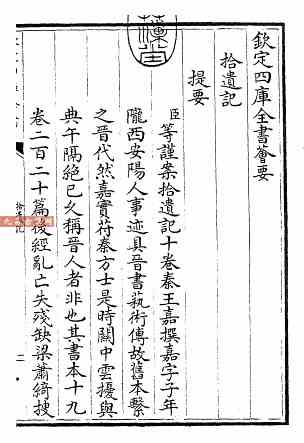 欽定四庫全書薈要
拾遺記
提要
臣等謹案拾遺記十卷秦王嘉撰嘉字子年
隴西安陽人事迹具晉書藝術傳故舊本繫
之晉代然嘉實苻秦方士是時關中雲擾與
典午隔絶已久稱晉人者非也其書本十九
卷二百二十篇後經亂亡失殘缺梁蕭綺搜
拾遺記